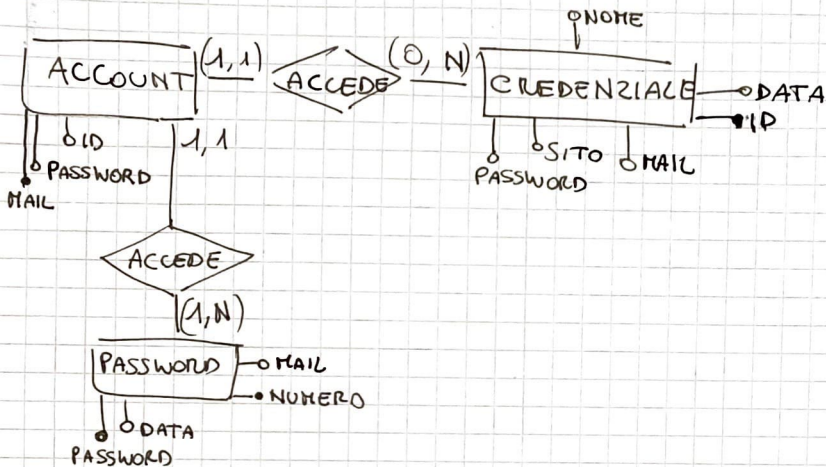 NOME
ACCOUNT (1,1) ACCEDE (0,N) CREDENZIALE
DATA
ID
ID
PASSWORD
MAIL
1,1
PASSWORD
SITO
MAIL
ACCEDE
(1,N)
PASSWORD
MAIL
NUMERO
DATA
PASSWORD